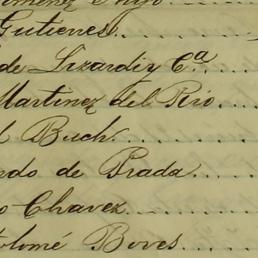 Gimenez e hijo
Gutierres
de Lizardi y Cª
Martinez del Rio
Buch
do de Prada
o Chavez
tolomé Boves